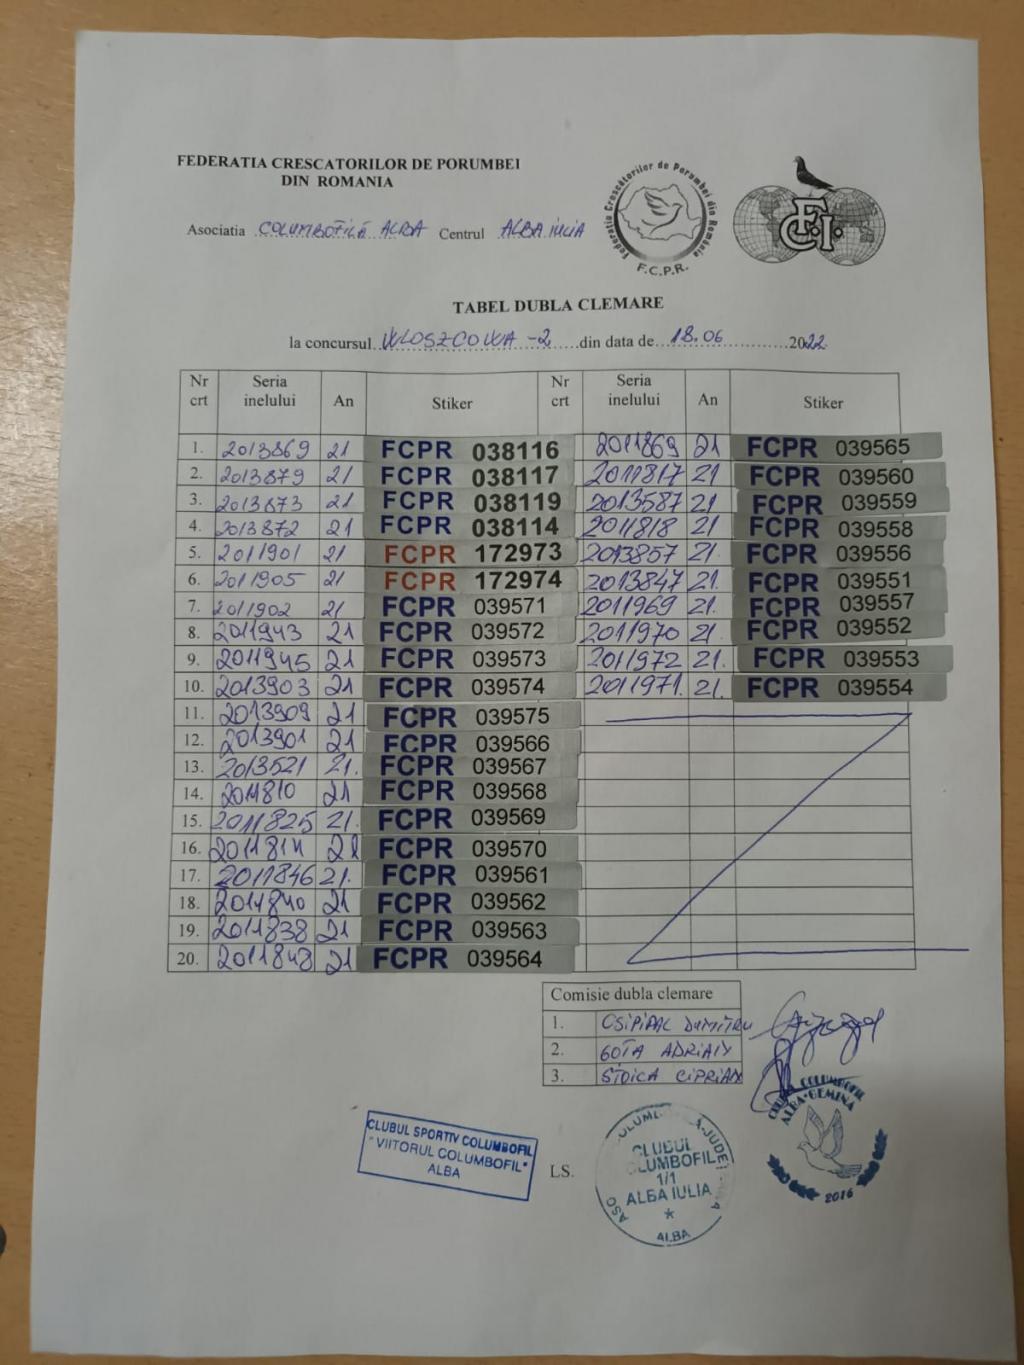 FEDERATIA CRESCATORILOR DE PORUMBEI
DIN ROMANIA
Federatia Crescătorilor de Porumbei din România
F.C.P.R.
F.C.I.
Asociatia COLUMBOFILĂ ALBA Centrul ALBA IULIA
TABEL DUBLA CLEMARE
la concursul WLOSZCOWA -2 din data de 18.06 2022
Nr crt Seria inelului An Stiker Nr crt Seria inelului An Stiker
1. 2013869 21 FCPR 038116 2011869 21 FCPR 039565
2. 2013879 21 FCPR 038117 2011817 21 FCPR 039560
3. 2013873 21 FCPR 038119 2013587 21 FCPR 039559
4. 2013872 21 FCPR 038114 2011818 21 FCPR 039558
5. 2011901 21 FCPR 172973 2013857 21. FCPR 039556
6. 2011905 21 FCPR 172974 2013847 21. FCPR 039551
7. 2011902 21 FCPR 039571 2011969 21. FCPR 039557
8. 2011943 21 FCPR 039572 2011970 21. FCPR 039552
9. 2011945 21 FCPR 039573 2011972 21. FCPR 039553
10. 2013903 21 FCPR 039574 2011971. 21. FCPR 039554
11. 2013909 21 FCPR 039575
12. 2013901 21 FCPR 039566
13. 2013521 21. FCPR 039567
14. 2011810 21 FCPR 039568
15. 2011825 21. FCPR 039569
16. 2011814 21 FCPR 039570
17. 2011846 21. FCPR 039561
18. 2011840 21 FCPR 039562
19. 2011838 21 FCPR 039563
20. 2011848 21 FCPR 039564
Comisie dubla clemare
1. OSIPIAC DUMITRU
2. GOTA ADRIAN
3. STOICA CIPRIAN
CLUBUL SPORTIV COLUMBOFIL
"VIITORUL COLUMBOFIL"
ALBA
LS.
CLUBUL
COLUMBOFIL
1/1
ALBA IULIA
*
ALBA
COLUMBOFIL
ALBA-GEMINA
2016